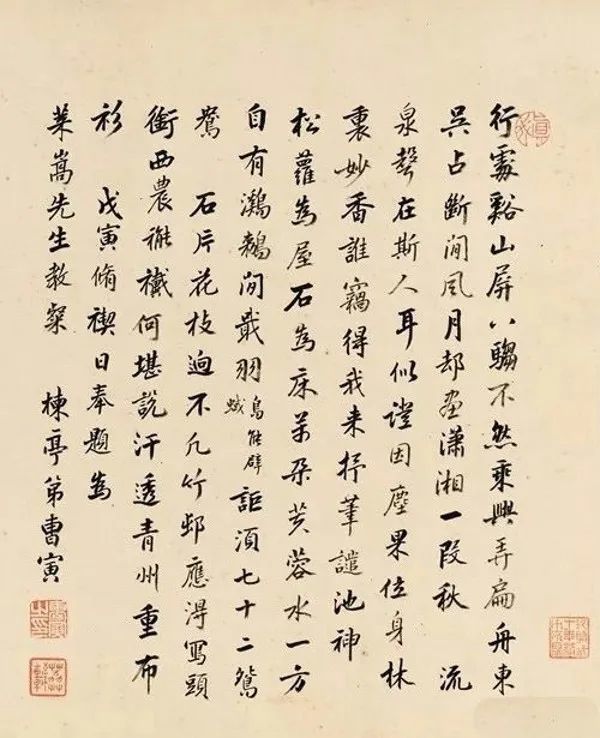 行處谿山屏八騶不然乘興弄扁舟東
吳占斷間風月却畫瀟湘一段秋 流
泉聲在斯人耳似證因塵果位身林
裏妙香誰竊得我来抒筆譴池神
松蘿為屋石為床萬朵芙蓉水一方
自有鸂鶒間戢羽鳥能辟蜮詎須七十二鴛
鴦 石片花枝迥不凡竹邨應淂寫頭
銜西農褦襶何堪說汗透青州重布
衫 戊寅脩禊日奉題為
萊嵩先生教粲 楝亭弟曹寅